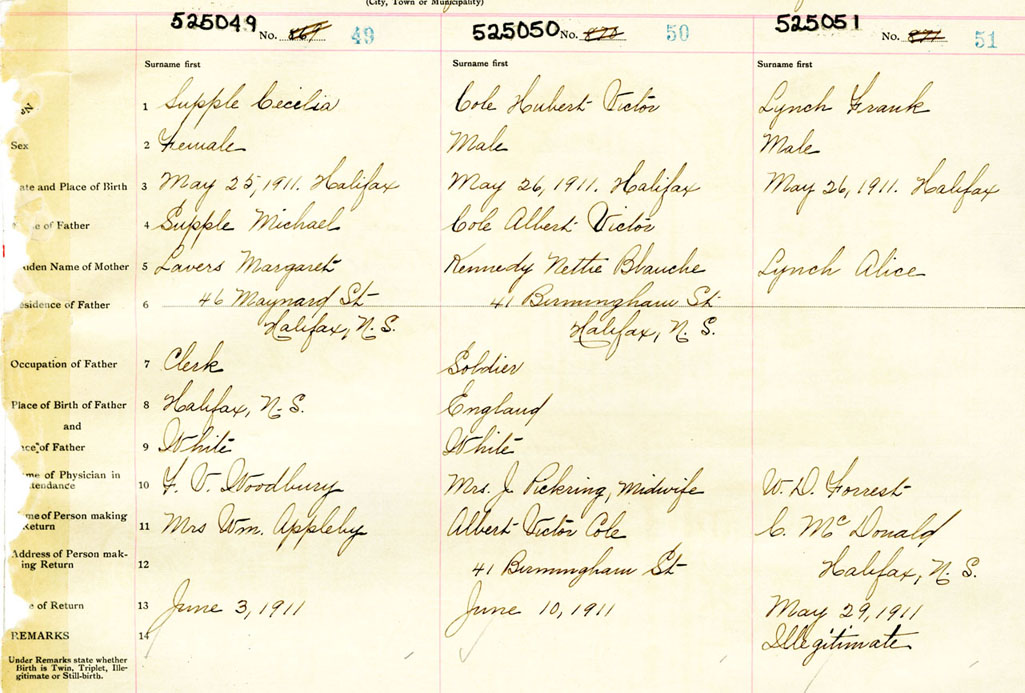 (City, Town or Municipality)
525049 No. 869 49 525050 No. 870 50 525051 No. 871 51
Surname first Surname first Surname first
1 Supple Cecilia Cole Hubert Victor Lynch Frank
Sex 2 Female Male Male
ate and Place of Birth 3 May 25, 1911. Halifax May 26, 1911. Halifax May 26, 1911. Halifax
e of Father 4 Supple Michael Cole Albert Victor
iden Name of Mother 5 Lavers Margaret Kennedy Nettie Blanche Lynch Alice
esidence of Father 6 46 Maynard St 41 Birmingham St
Halifax, N. S. Halifax, N. S.
Occupation of Father 7 Clerk Soldier
Place of Birth of Father 8 Halifax, N. S. England
and
ace of Father 9 White White
me of Physician in
ttendance 10 F. V. Woodbury Mrs. J. Pickring, Midwife W. D. Forrest
me of Person making
Return 11 Mrs Wm. Appleby Albert Victor Cole C. McDonald
Address of Person mak-
ing Return 12 41 Birmingham St Halifax, N. S.
e of Return 13 June 3, 1911 June 10, 1911 May 29, 1911
REMARKS 14 Illegitimate
Under Remarks state whether
Birth is Twin, Triplet, Ille-
gitimate or Still-birth.